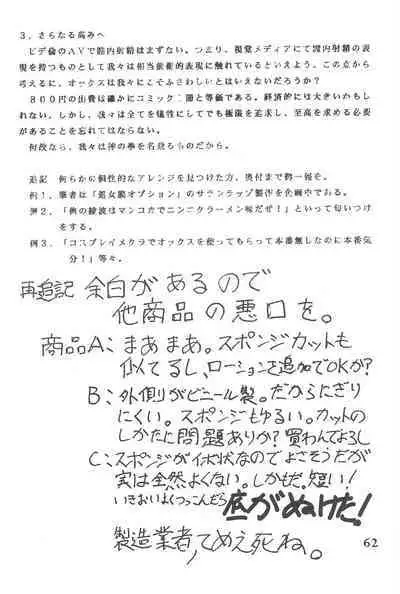 3．さらなる高みへ
ビデ倫のAVで膣内射精はまずない。つまり、視覚メディアにて膣内射精の表
現を持つものとして我々は相当前衛的表現に触れているといえよう。この点から
考えるに、オークスは我々にこそふさわしいとはいえないだろうか？
800円の出費は確かにコミック二冊と等価である。経済的には大きいかもし
れない。しかし、我々は全てを犠牲にしてでも極限を追求し、至高を求める必要
があることを忘れてはならない。
何故なら、我々は神の拳を名乗るものだから。
追記 何らかの個性的なアレンジを見つけた方、奥付まで御一報を。
例1、筆者は「処女膜オプション」のサランラップ製作を企画中である。
例2、「例の綾波はマンコカでニンニクラーメン味だぜ！」といって匂いつけ
をする。
例3、「コスプレイメクラでオックスを使ってもらって本番無しなのに本番気
分！」等々。
再追記 余白があるので
他商品の悪口を。
商品A：まあまあ。スポンジカットも
似てるし、ローションを追加でOKか？
B：外側がビニール製。だからにぎり
にくい。スポンジもゆるい。カットの
しかたに問題ありか？買わんでよろし
C：スポンジがイボ状なのでよさそうだが
実は全然よくない。しかもだ、短い！
いきおいよくつっこんだら底がぬけた！
製造業者、てめえ死ね。
62